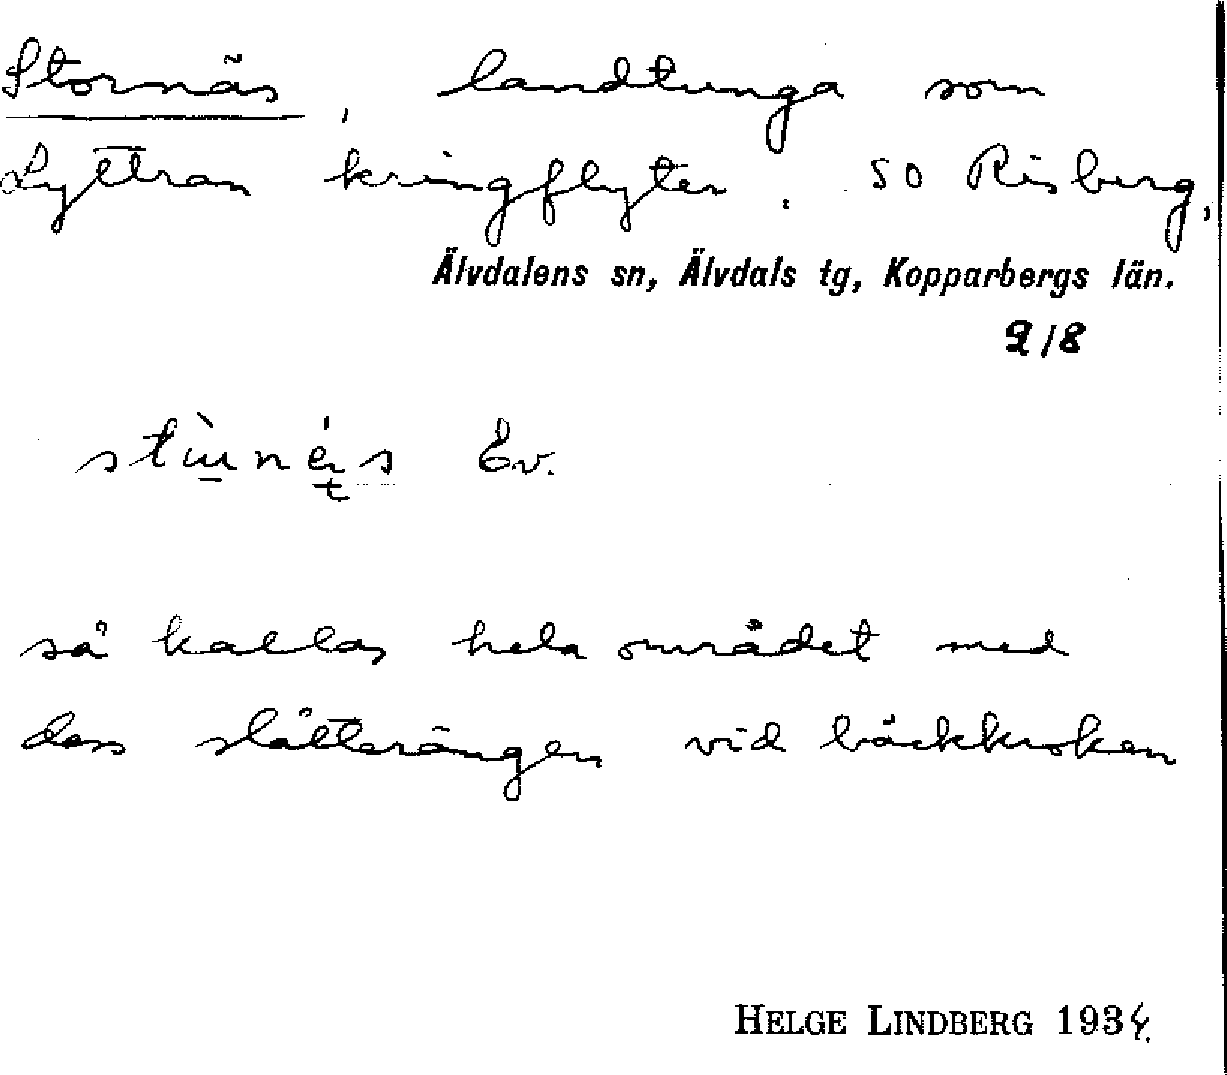 Stornäs, landtunga som
Lyttran kringflyter. SO Risberg,
Älvdalens sn, Älvdals tg, Kopparbergs län.
2/8
Ev.
så kallas hela området med
dess slåtterängen vid bäckkroken
HELGE LINDBERG 1934.